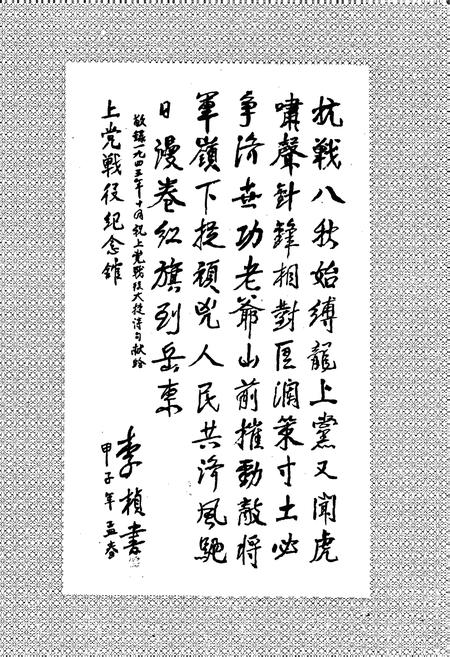 抗戰八秋始縛龍上黨又聞虎
嘯聲針鋒相對匡润策寸土必
争济世功老爺山前摧勁敵将
軍嶺下捉頑兇人民共济風馳
日漫卷红旗到岳東
敬錄一九四五年十月記上党戰役大捷诗句献给
上党戰役纪念舘
李楨書
甲子年孟春